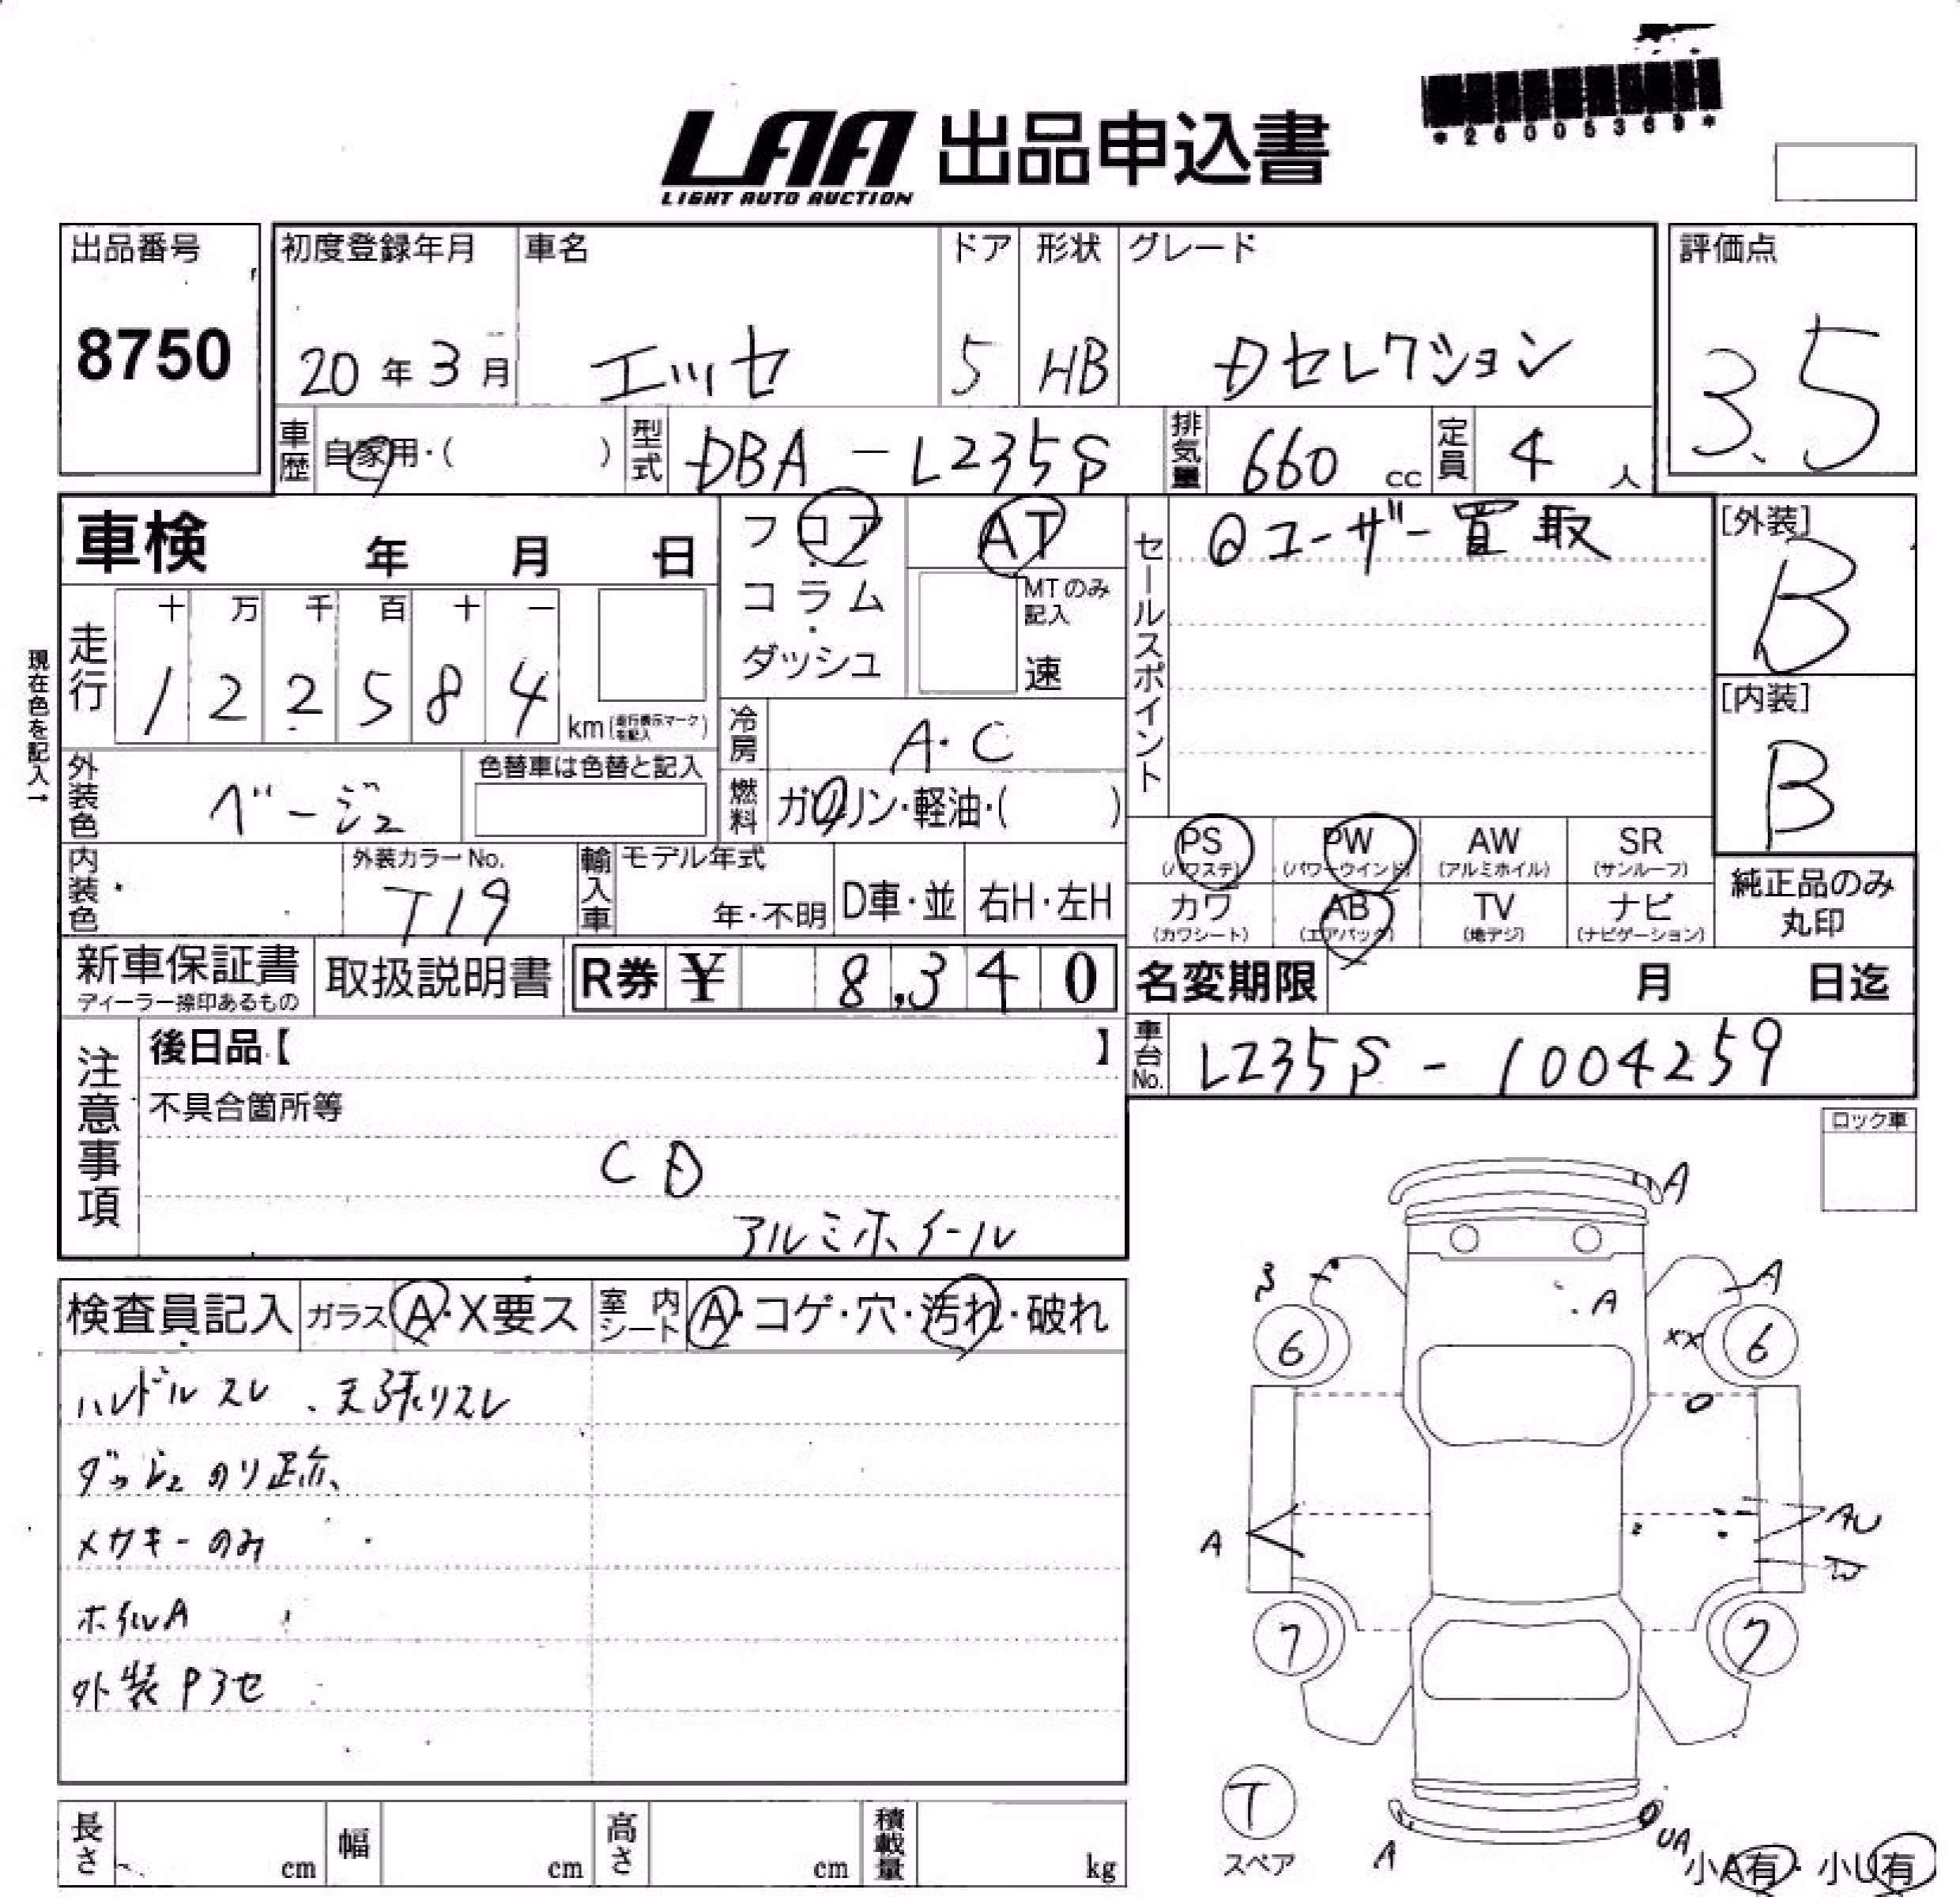 LAA 出品申込書
LIGHT AUTO AUCTION
*26005369*
出品番号
8750
初度登録年月
20年3月
車名
エッセ
ドア
5
形状
HB
グレード
Dセレクション
評価点
3.5
車歴
自家用・( )
型式
DBA-L235S
排気量
660 cc
定員
4 人
車検 年 月 日
フロア
・
コラム
・
ダッシュ
AT
MTのみ
記入
速
セールスポイント
ユーザー買取
[外装]
B
[内装]
B
現在色を記入→
走行
十 万 千 百 十 一
1 2 2 5 8 4
km(走行表示マークを記入)
冷房
A・C
外装色
ベージュ
色替車は色替と記入
燃料
ガソリン・軽油・( )
PS
(パワステ)
PW
(パワーウインド)
AW
(アルミホイル)
SR
(サンルーフ)
カワ
(カワシート)
AB
(エアバッグ)
TV
(地デジ)
ナビ
(ナビゲーション)
純正品のみ
丸印
内装色
外装カラーNo.
T19
輸入車
モデル年式
年・不明
D車・並
右H・左H
新車保証書
ディーラー捺印あるもの
取扱説明書
R券 ¥ 8,340
名変期限 月 日迄
車台No.
L235S-1004259
注意事項
後日品【 】
不具合箇所等
CD
アルミホイール
ロック車
検査員記入
ガラス A・X要ス
室内シート A・コゲ・穴・汚れ・破れ
ハンドルスレ、天張リスレ
ダッシュのり跡、
メカキーのみ
ホイルA
外装Pヨセ
A
A
A
XX
6
6
A
AU
W
7
7
T
スペア
A
UA
小A有・小U有
長さ cm
幅 cm
高さ cm
積載量 kg